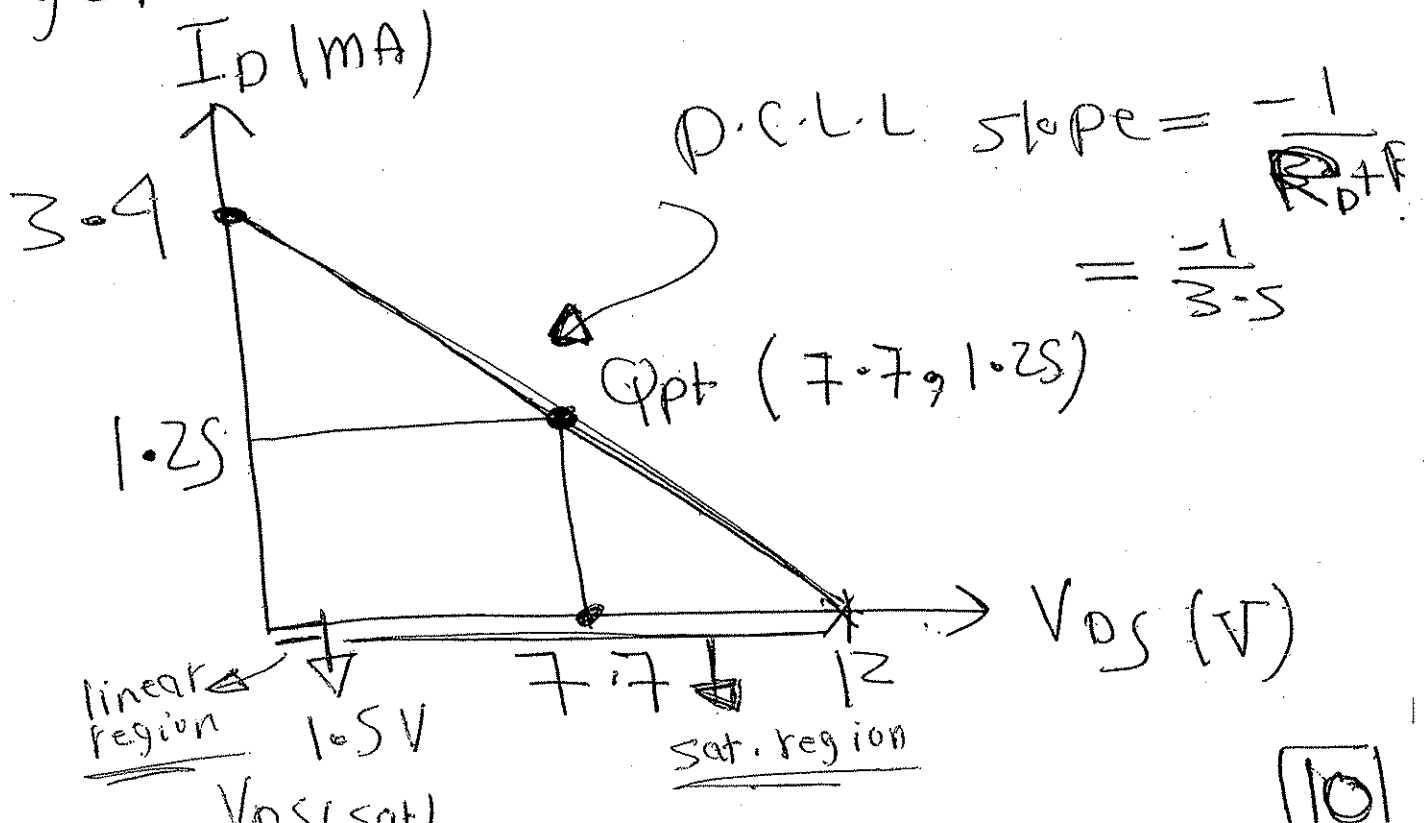 I_D (mA)
D.C.L.L slope = -1
R_D+
= -1
3.5
3.4
Qpt (7.7, 1.25)
1.25
V_DS (V)
7.7
12
linear
region
1.5V
sat. region
V_DS(sat)
10